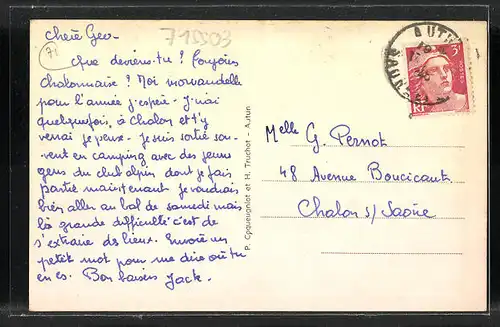 715503
71
Chère Geo-
Que deviens-tu ? Toujours
chalonnaise ? Moi morvandelle
pour l'année j'espère - J'irai
quelquefois, à Chalon et t'y
verrai je peux - Je suis sortie sou-
vent en camping avec des jeunes
gens du club alpin dont je fais
partie maintenant je voudrais
bien aller au bal de samedi mais
la grande difficulté c'est de
s'extraire de lieux. Envoie un
petit mot pour me dire où tu
en es. Bon baisers Jack.
P. Cpqueugniot et H. Truchot - Autun
AUTUN
3F
RF
Melle G. Pernot
48 Avenue Boucicaut
Chalon s/ Saône